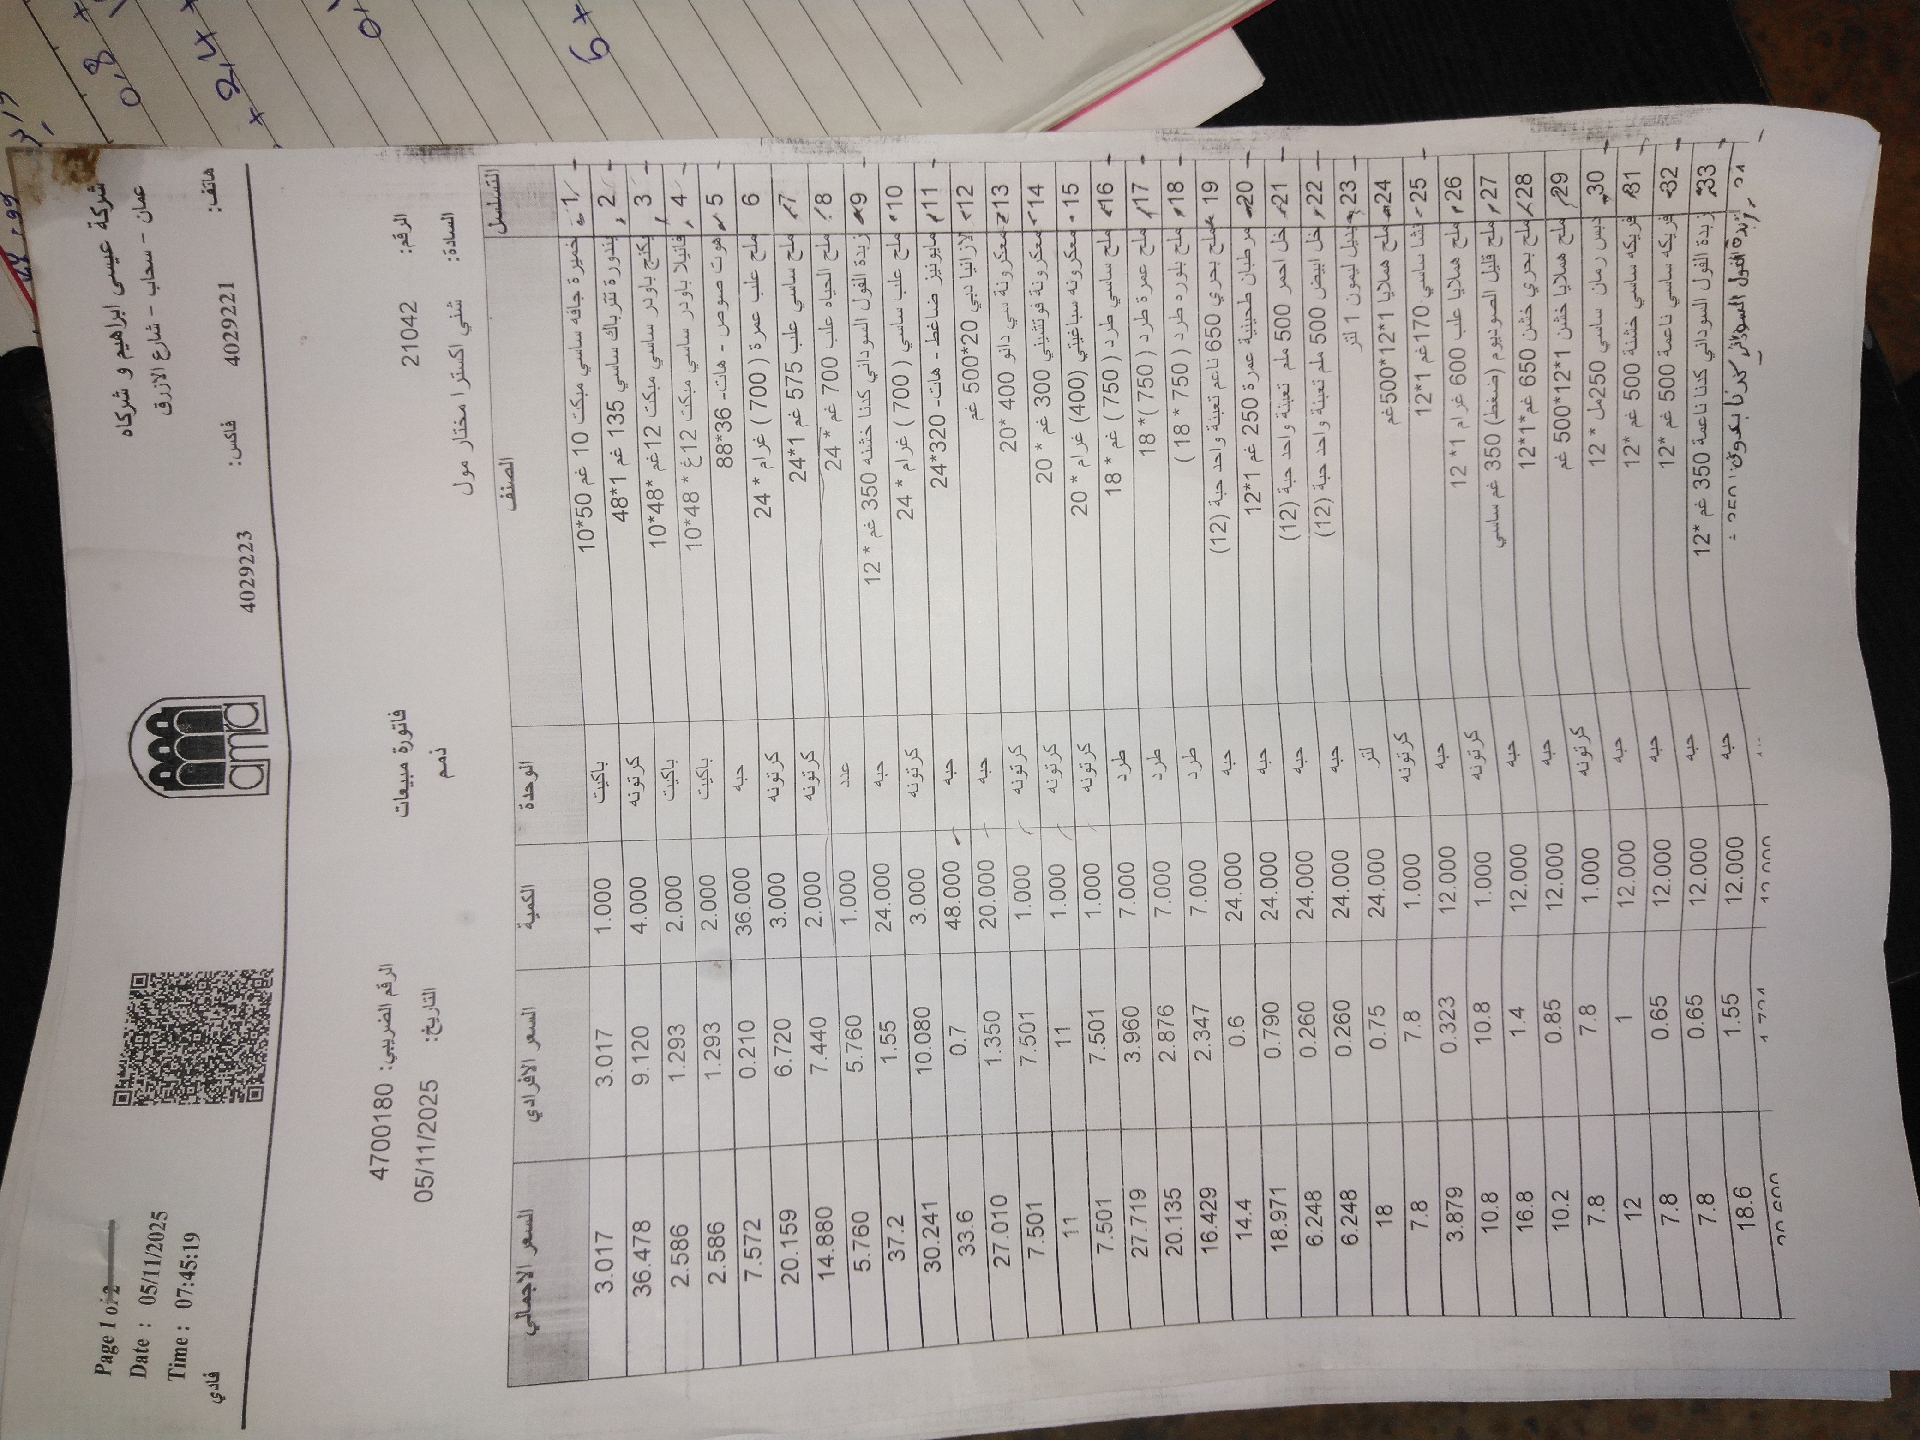 شركة عيسى ابراهيم و شركاه
عمان - سحاب - شارع الازرق
هاتف: 4029221 فاكس: 4029223
amra
Page 1 of 2
Date : 05/11/2025
Time : 07:45:19
فادي
فاتورة مبيعات
ذمم
الرقم: 21042
الرقم الضريبي: 4700180
السادة: شني اكسترا مختار مول
التاريخ: 05/11/2025
التسلسل الصنف الوحدة الكمية السعر الافرادي السعر الاجمالي
1 خميرة جافه ساسي مبكت 10 غم 50*10 باكيت 1.000 3.017 3.017
2 بندورة تتراباك ساسي 135 غم 1*48 كرتونه 4.000 9.120 36.478
3 بكنج باودر ساسي مبكت 12غم *48*10 باكيت 2.000 1.293 2.586
4 فانيلا باودر ساسي مبكت 12غ * 48*10 باكيت 2.000 1.293 2.586
5 هوت صوص - هات- 36*88 حبه 36.000 0.210 7.572
6 ملح علب عمرة ( 700 ) غرام * 24 كرتونه 3.000 6.720 20.159
7 ملح ساسي علب 575 غم 1*24 كرتونه 2.000 7.440 14.880
8 ملح الحياه علب 700 غم * 24 عدد 1.000 5.760 5.760
9 زبدة الفول السوداني كدنا خشنه 350 غم * 12 حبه 24.000 1.55 37.2
10 ملح علب ساسي ( 700 ) غرام * 24 كرتونه 3.000 10.080 30.241
11 مايونيز ضاغط - هات- 320*24 حبه 48.000 0.7 33.6
12 لازانيا دبي 20*500 غم حبه 20.000 1.350 27.010
13 معكرونة سي دالو 400 *20 كرتونه 1.000 7.501 7.501
14 معكرونة فوتشيني 300 غم * 20 كرتونه 1.000 11 11
15 معكرونه سباغيتي (400) غرام * 20 كرتونه 1.000 7.501 7.501
16 ملح ساسي طرد ( 750 ) غم * 18 طرد 7.000 3.960 27.719
17 ملح عمرة طرد ( 750 )* 18 طرد 7.000 2.876 20.135
18 ملح بلوره طرد ( 750 * 18 ) طرد 7.000 2.347 16.429
19 ملح بحري 650 ناعم تعبنة واحد حبة (12) حبه 24.000 0.6 14.4
20 مرطبان طحينية عمرة 250 غم 1*12 حبه 24.000 0.790 18.971
21 خل احمر 500 ملم تعبنة واحد حبة (12) حبه 24.000 0.260 6.248
22 خل ابيض 500 ملم تعبنة واحد حبة (12) حبه 24.000 0.260 6.248
23 بديل ليمون 1 لتر لتر 24.000 0.75 18
24 ملح هملايا 1*12*500غم كرتونه 1.000 7.8 7.8
25 نشا ساسي 170غم 1*12 حبه 12.000 0.323 3.879
26 ملح هملايا علب 600 غرام 1* 12 كرتونه 1.000 10.8 10.8
27 ملح قليل الصوديوم (ضغط) 350 غم ساسي حبه 12.000 1.4 16.8
28 ملح بحري خشن 650 غم*1*12 حبه 12.000 0.85 10.2
29 ملح هملايا خشن 1*12*500 غم كرتونه 1.000 7.8 7.8
30 دبس رمان ساسي 250مل * 12 حبه 12.000 1 12
31 فريكه ساسي خشنة 500 غم *12 حبه 12.000 0.65 7.8
32 فريكه ساسي ناعمة 500 غم *12 حبه 12.000 0.65 7.8
33 زبدة الفول السوداني كدنا ناعمة 350 غم *12 حبه 12.000 1.55 18.6